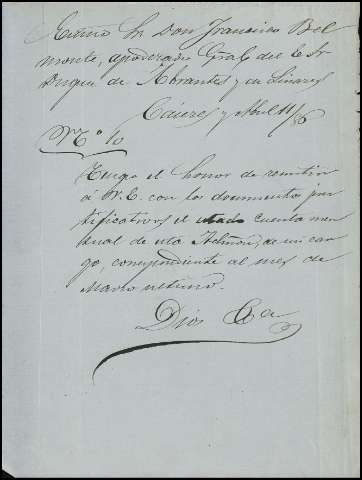 Exmo Sr Don Francisco Bel
monte, apoderado Gral del E Sr
Duque de Abrantes y de Linares
Cáceres y Abril 11/86
Nº 10
Tengo el honor de remitir
á V. E. con los documentos jus
tificativos el estado cuenta men
sual de esta Admon, de mi car
go, correspondiente al mes de
Marzo último.
Dios &a